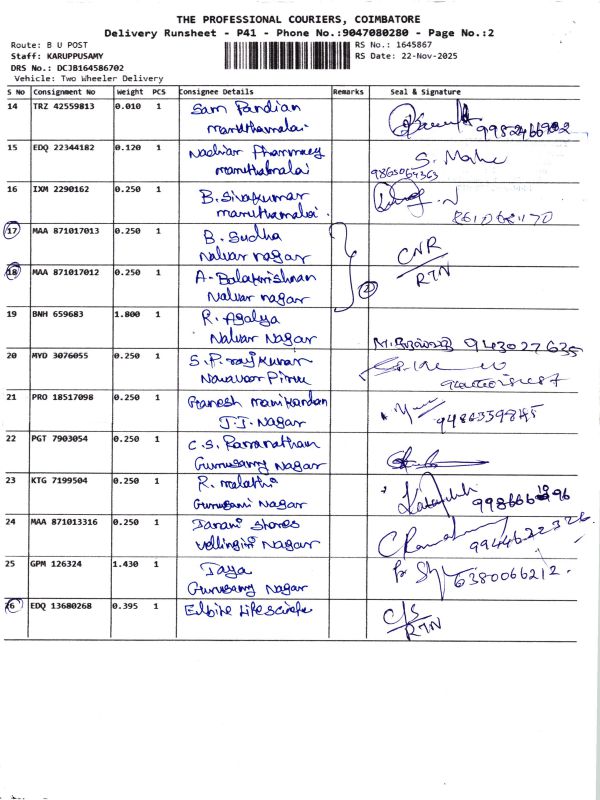 THE PROFESSIONAL COURIERS, COIMBATORE
Delivery Runsheet - P41 - Phone No.:9047080280 - Page No.:2
Route: B U POST
Staff: KARUPPUSAMY
DRS No.: DCJB164586702
Vehicle: Two Wheeler Delivery
RS No.: 1645867
RS Date: 22-Nov-2025
S No Consignment No Weight PCS Consignee Details Remarks Seal & Signature
14 TRZ 42559813 0.010 1 Sam Pandian
Maruthamalai
15 EDQ 22344182 0.120 1 Nachiar Pharmacy S. Mahe
Maruthamalai 9865064363
16 IXM 2290162 0.250 1 B. Sivakumar
Maruthamalai.
17 MAA 871017013 0.250 1 B. Sudha CNR
Nalvar nagar RTN
18 MAA 871017012 0.250 1 A. Balakrishnan 2
Nalvar nagar
19 BNH 659683 1.800 1 R. Agalya
Nalvar Nagar 943027635
20 MYD 3076055 0.250 1 S. P. rajkumar
Navavoor Pirivu
21 PRO 18517098 0.250 1 Ganesh Manikandan
T.T. Nagar 9486339845
22 PGT 7903054 0.250 1 C.S. Ramanathan
Gurusamy Nagar
23 KTG 7199504 0.250 1 R. Malathi
Gurusami Nagar
24 MAA 871013316 0.250 1 Janani Stores
Vellingiri Nagar 9944622326.
25 GPM 126324 1.430 1 Jaya
Gurusamy Nagar 6380066212.
26 EDQ 13680268 0.395 1 C/S
RTN